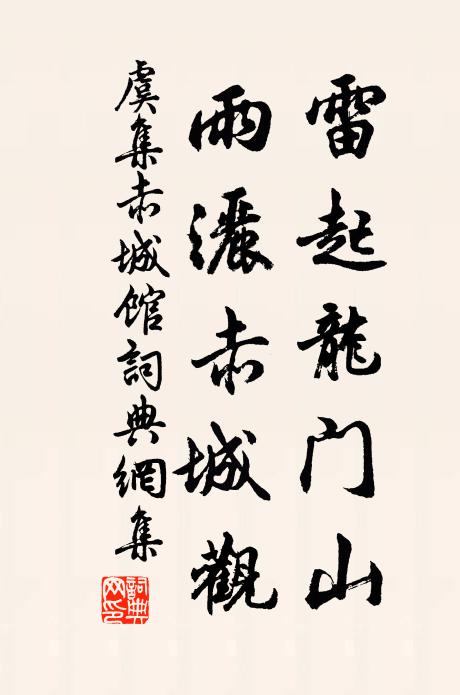 雷起龍门山
雨灑赤城觀
虞集赤城館詞典網集
詞典
网印